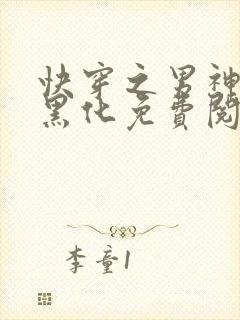 快穿之男神
黑化免费阅
李童1